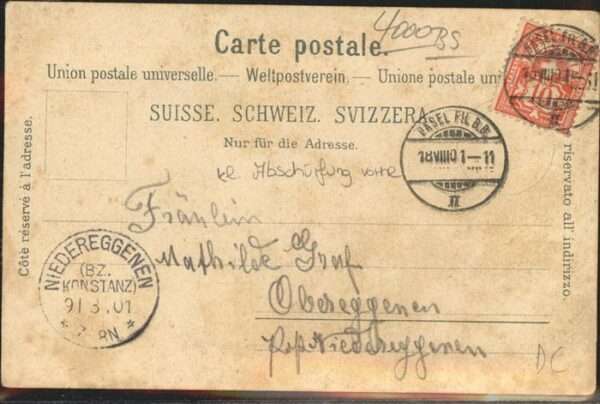 4000 BS
Carte postale.
Union postale universelle. — Weltpostverein. — Unione postale uni
SUISSE. SCHWEIZ. SVIZZERA.
Nur für die Adresse.
kl. Abschürfung vorne
Côté réservé à l'adresse.
riservato all' indirizzo.
BASEL FIL. B.B.
18 VIII 01–11
II
10
Fräulein
Mathilde Graf
Obereggenen
Niedereggenen
NIEDEREGGENEN
(BZ.
KONSTANZ)
8.01
N
DC